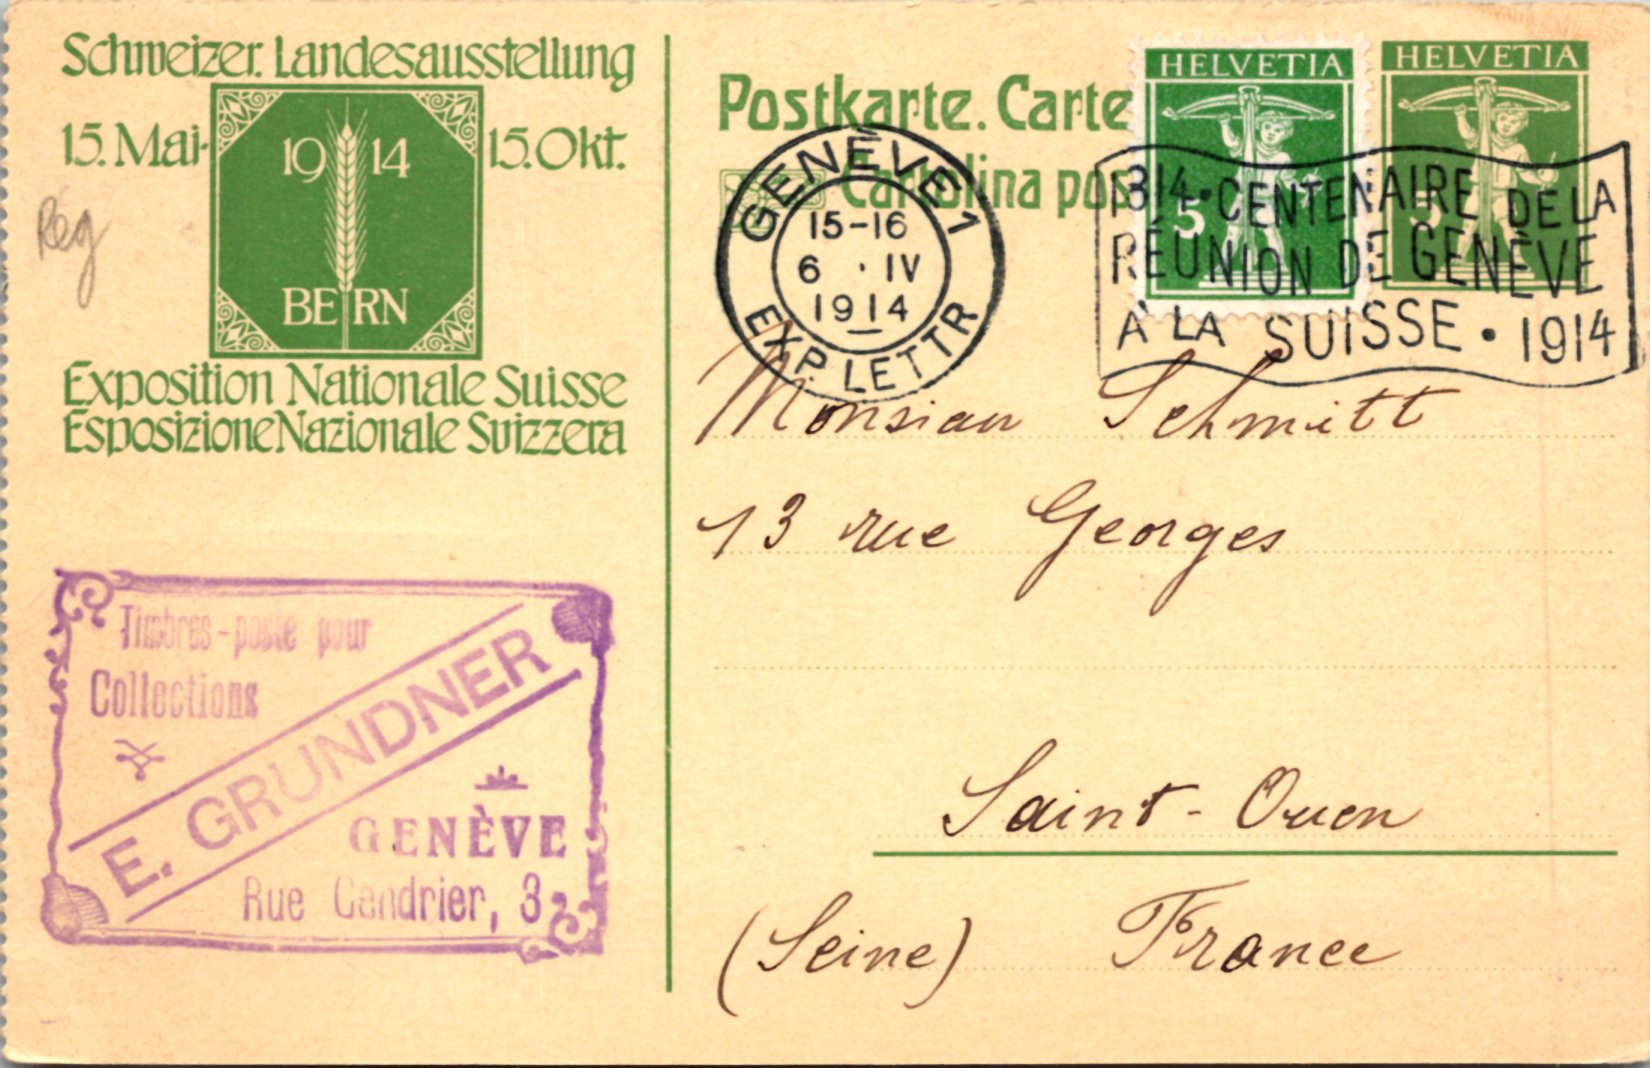 Schweizer. Landesausstellung
15. Mai - 15. Okt.
1914
BERN
Exposition Nationale Suisse
Esposizione Nazionale Svizzera
Reg
Timbres-poste pour
Collections
E. GRUNDNER
GENÈVE
Rue Cendrier, 3
Postkarte. Carte
Cartolina pos
HELVETIA
5
HELVETIA
5
GENÈVE 1
15-16
6 . IV
1914
EXP. LETTR
1814 • CENTENAIRE DE LA
RÉUNION DE GENÈVE
À LA SUISSE • 1914
Monsieur Schmitt
13 rue Georges
Saint-Ouen
(Seine) France